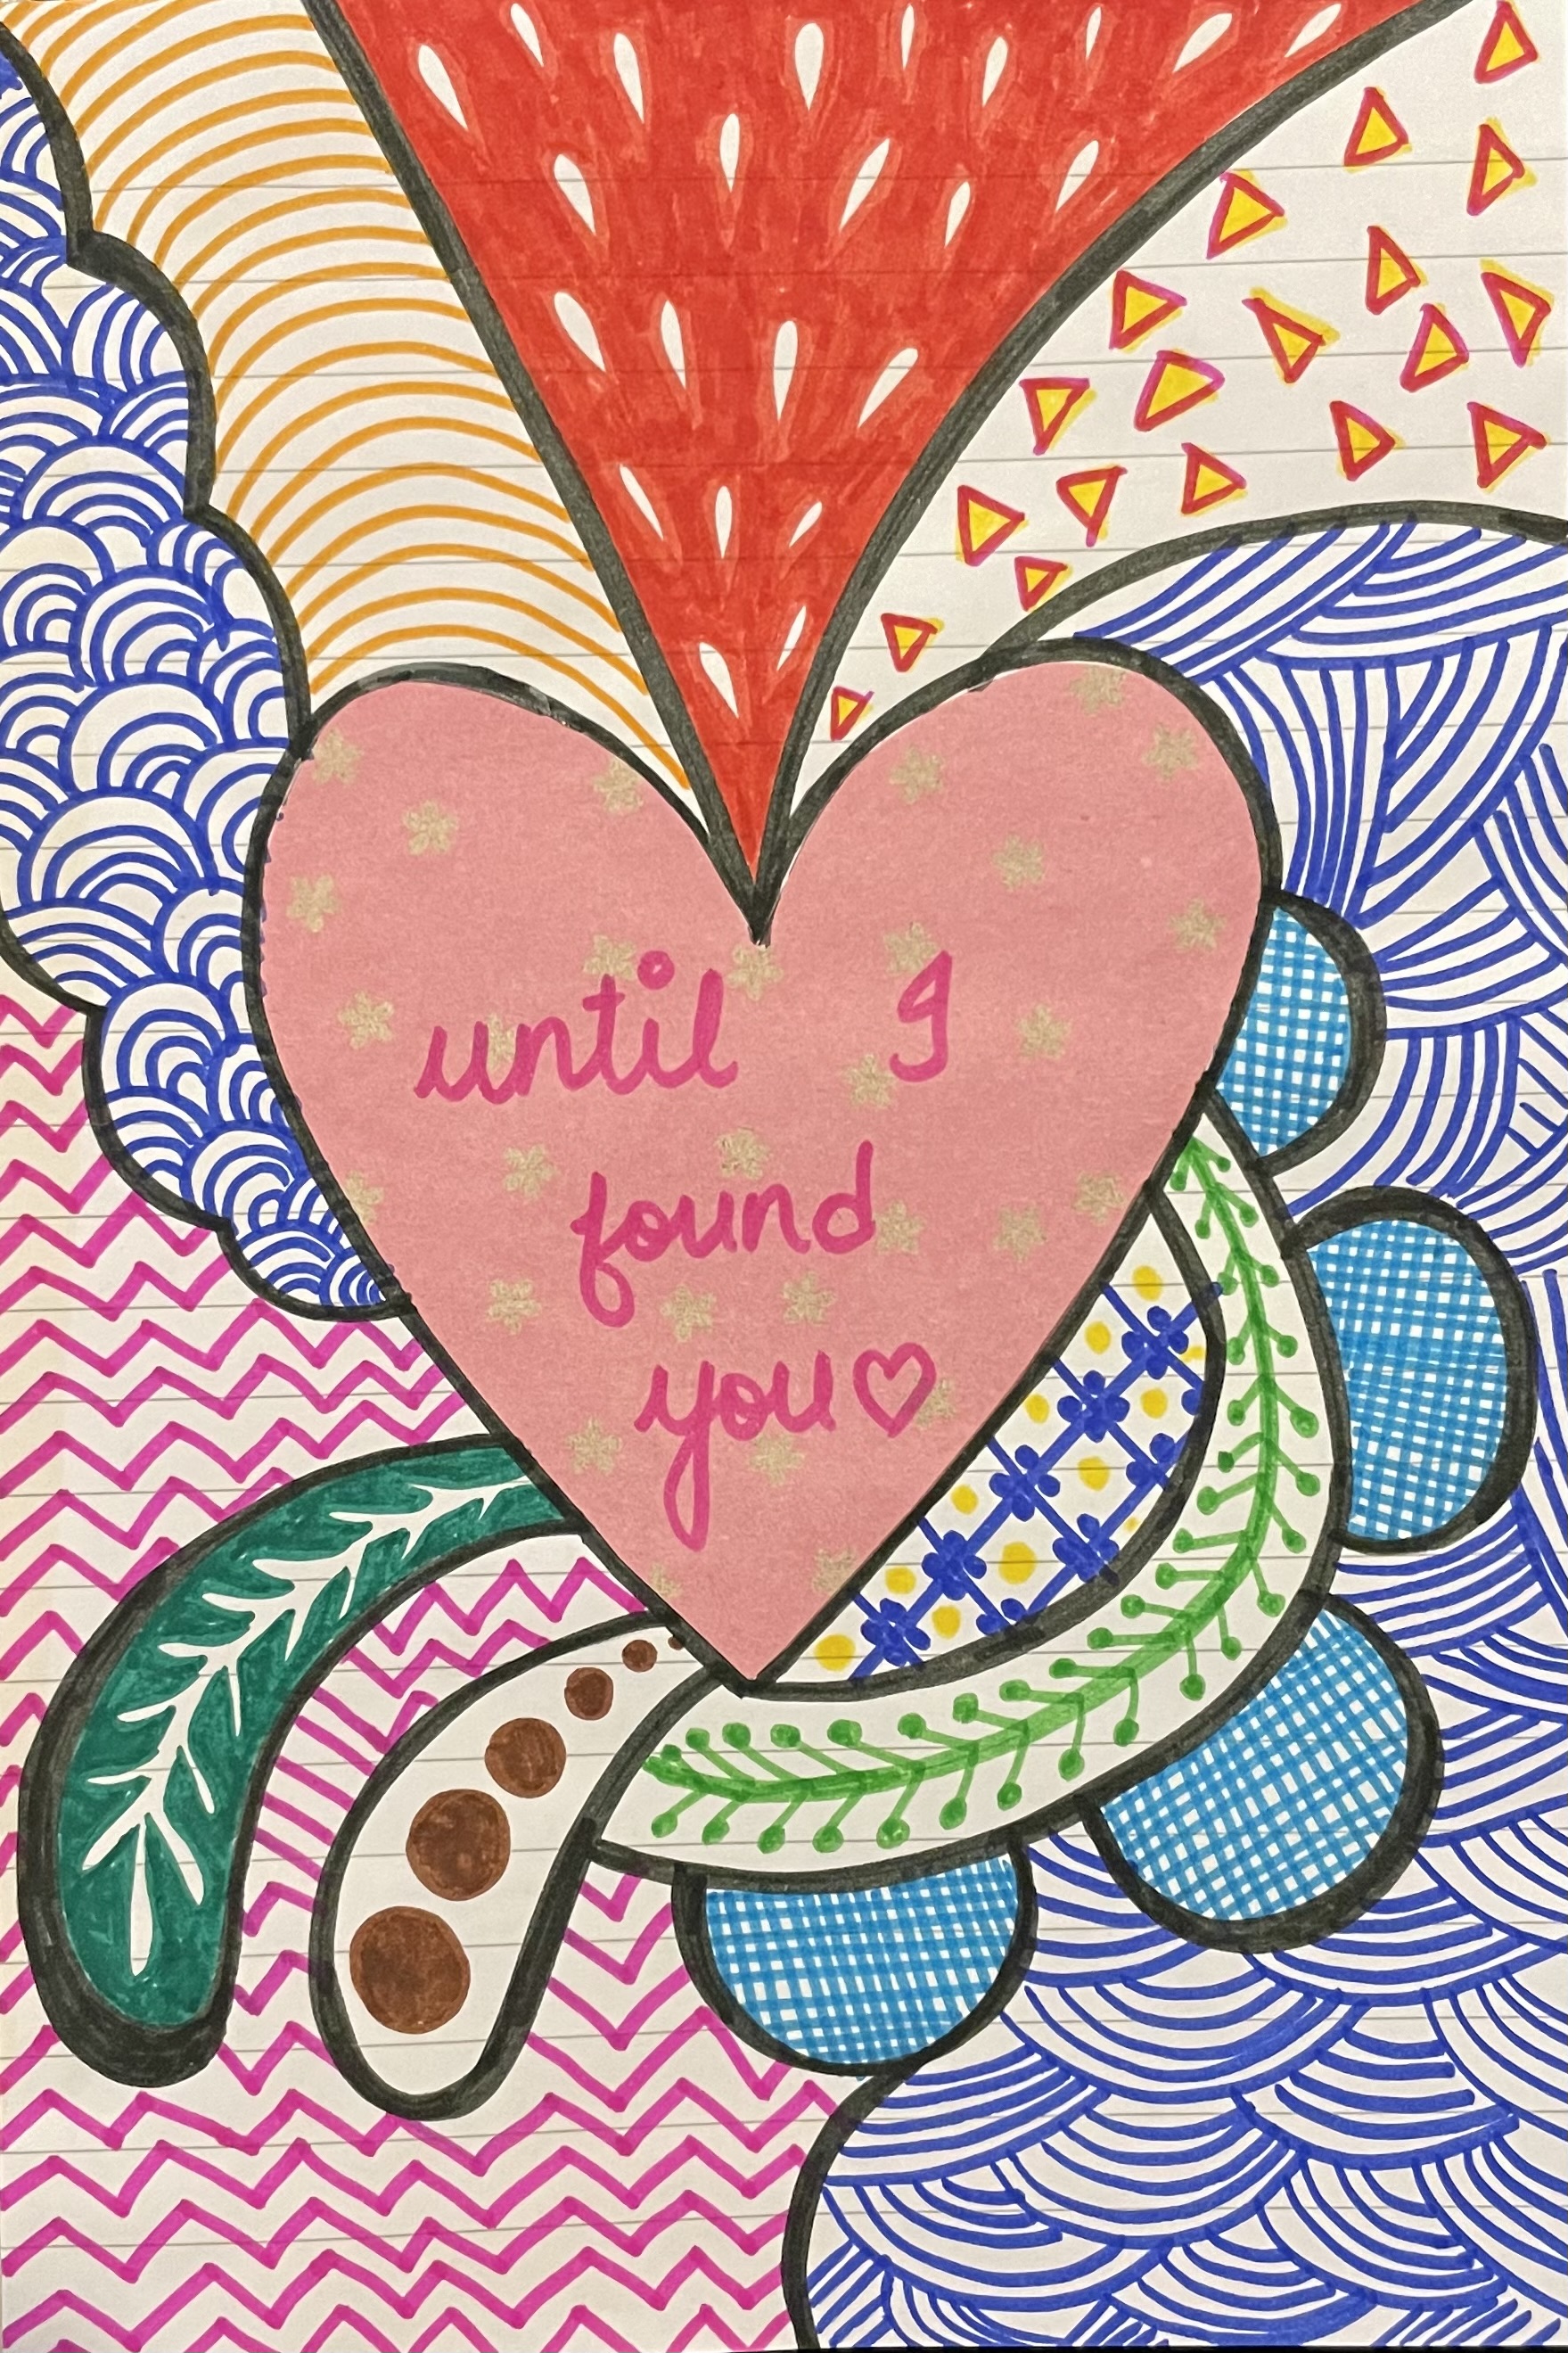 until I
found
you♡